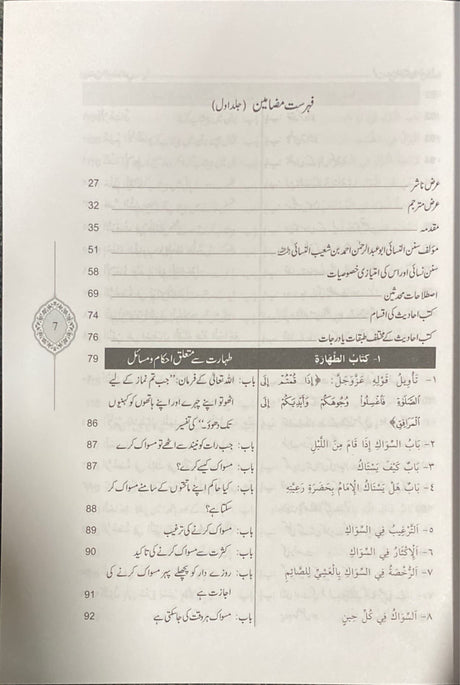 فہرست مضامین (جلد اول)
عرض ناشر 27
عرض مترجم 32
مقدمہ 35
مؤلف سنن النسائی ابوعبدالرحمٰن احمد بن شعیب النسائی رحمہ اللہ 51
سنن نسائی اور اس کی امتیازی خصوصیات 58
اصطلاحات محدثین 69
کتب احادیث کی اقسام 74
کتب احادیث کے مختلف طبقات یا درجات 76
١- كتاب الطهارة طہارت سے متعلق احکام و مسائل 79
١- تَأْوِيلُ قَوْلِهِ عَزَّوَجَلَّ: ﴿إِذَا قُمْتُمْ إِلَى باب: اللہ تعالیٰ کے فرمان: ’’جب تم نماز کے لیے
الصَّلَوٰةِ فَاغْسِلُوا وُجُوهَكُمْ وَأَيْدِيَكُمْ إِلَى اٹھو تو اپنے چہرے اور اپنے ہاتھوں کو کہنیوں
الْمَرَافِقِ﴾ تک دھوؤ۔‘‘ کی تفسیر 86
٢- بَابُ السِّوَاكِ إِذَا قَامَ مِنَ اللَّيْلِ باب: جب رات کو نیند سے اٹھے تو مسواک کرے 87
٣- بَابٌ كَيْفَ يَسْتَاكُ باب: مسواک کیسے کرے؟ 87
٤- بَابٌ هَلْ يَسْتَاكُ الْإِمَامُ بِحَضْرَةِ رَعِيَّتِهِ باب: کیا حاکم اپنے ماتحتوں کے سامنے مسواک کر
سکتا ہے؟ 88
٥- اَلتَّرْغِيبُ فِي السِّوَاكِ باب: مسواک کرنے کی ترغیب 89
٦- اَلْإِكْثَارُ فِي السِّوَاكِ باب: کثرت سے مسواک کرنے کی تاکید 90
٧- اَلرُّخْصَةُ فِي السِّوَاكِ بِالْعَشِيِّ لِلصَّائِمِ باب: روزے دار کو پچھلے پہر مسواک کرنے کی
اجازت ہے 91
٨- اَلسِّوَاكُ فِي كُلِّ حِينٍ باب: مسواک ہر وقت کی جا سکتی ہے 92
7